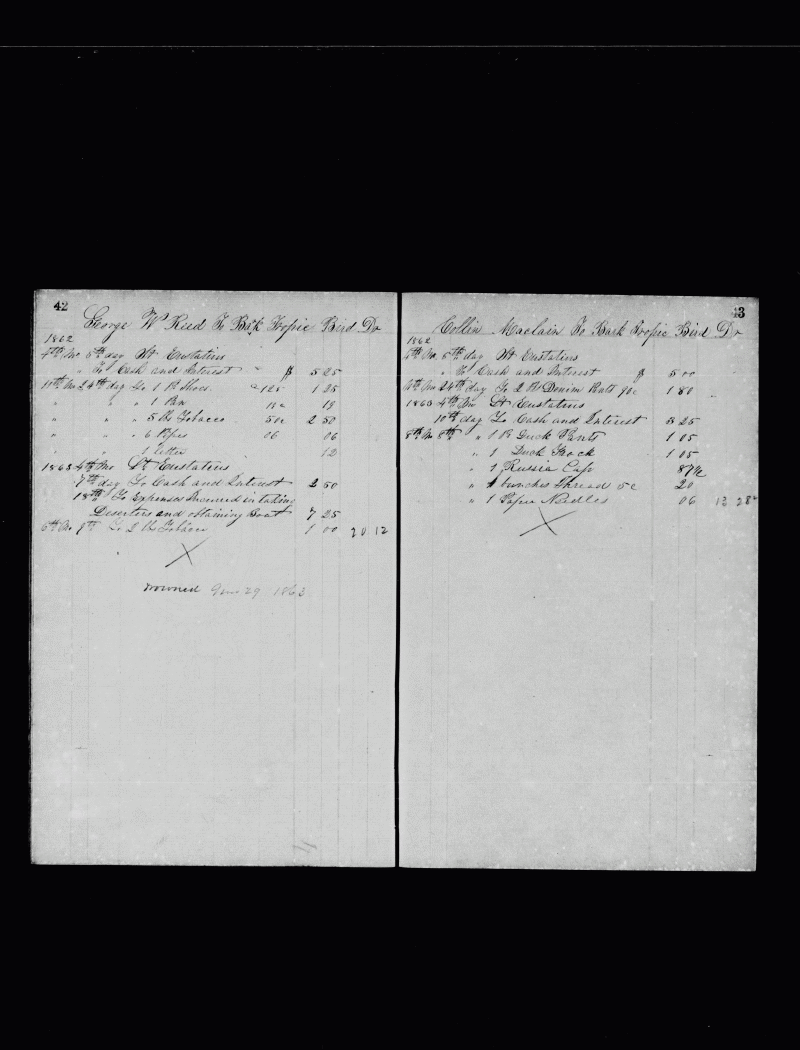 42
George W Reed To Bark Tropic Bird Dr
1862
4th Mo 5th day St Eustatius
" To Cash and Interest " $ 5 25
10th Mo 24th day To 1 Pr Shoes 125 1 25
" " " 1 Pan 19
" " " 5 lbs Tobacco 50c 2 50
" " " 6 Pipes 06 06
" " 1 Letter 12
1863 4th Mo St Eustatius
7th day To Cash and Interest 2 50
18th To Expenses Incurred in taking
Deserters and obtaining Boat 7 25
6th Mo 9th To 2 lbs Tobacco 1 00 20 12
X
Drowned June 29 1863
43
Collin Maclain To Bark Tropic Bird Dr
1862
4th Mo 5th day St Eustatius
" To Cash and Interest $ 5 00
10th Mo 24th day To 2 Denim 90c 1 80
1863 4th Mo St Eustatius
10th day To Cash and Interest 5 25
8th Mo 8th " 1 Pr Duck Pants 1 05
" 1 Duck Frock 1 05
" 1 Russia Cap 87½
" bunches Thread 5c 20
" 1 Paper Needles 06 13 28½
X